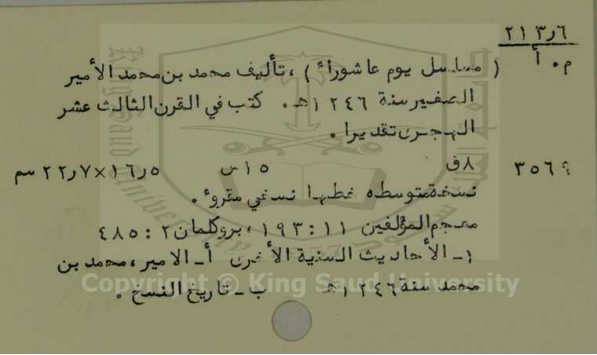 ٢١٣ر٦
م٠ أ ( مسلسل يوم عاشوراء ) ، تأليف محمد بن محمد الأمير
الصغير سنة ١٢٤٦هـ٠ كتب في القرن الثالث عشر
الهجري تقديرا ٠
٣٥٦٤ ٨ق ١٥س ٢٢ر٧×١٦ر٥ سم
نسخة متوسطه خطها نسخي مقروء ٠
معجم المؤلفين ١١ : ١٩٣ ، بروكلمان ٢ : ٤٨٥
١- الأحاديث السنية الأخرى أ- الامير ، محمد بن
محمد سنة ١٢٤٦هـ ب - تاريخ النسخ ٠
Copyright © King Saud University
King Saud University